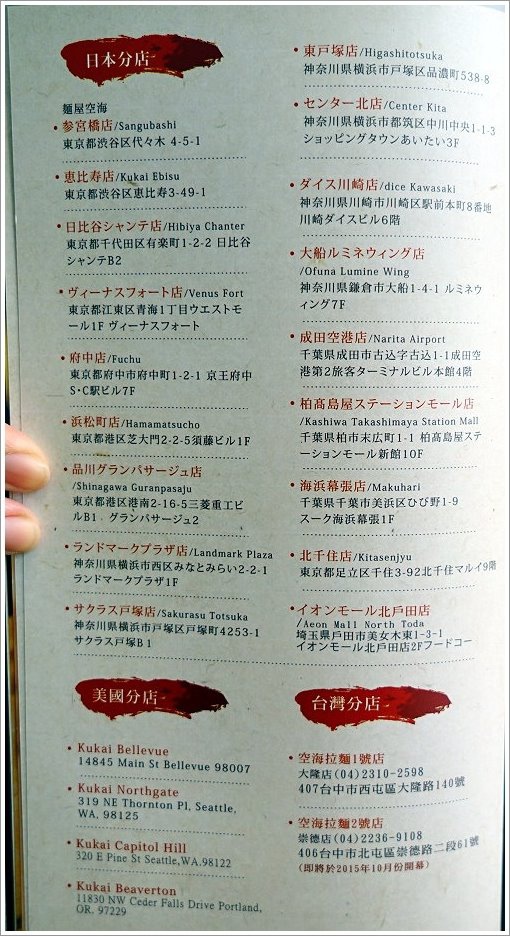 日本分店
麵屋空海
•参宮橋店/Sangubashi
東京都渋谷区代々木 4-5-1
•恵比寿店/Kukai Ebisu
東京都渋谷区恵比寿3-49-1
•日比谷シャンテ店/Hibiya Chanter
東京都千代田区有楽町1-2-2 日比谷
シャンテB2
•ヴィーナスフォート店/Venus Fort
東京都江東区青海1丁目ウエストモ
ール1F ヴィーナスフォート
•府中店/Fuchu
東京都府中市府中町1-2-1 京王府中
S・C駅ビル7F
•浜松町店/Hamamatsucho
東京都港区芝大門2-2-5須藤ビル1F
•品川グランパサージュ店
/Shinagawa Guranpasaju
東京都港区港南2-16-5三菱重工ビ
ルB1 グランパサージュ2
•ランドマークプラザ店/Landmark Plaza
神奈川県横浜市西区みなとみらい2-2-1
ランドマークプラザ1F
•サクラス戸塚店/Sakurasu Totsuka
神奈川県横浜市戸塚区戸塚町4253-1
サクラス戸塚B1
•東戸塚店/Higashitotsuka
神奈川県横浜市戸塚区品濃町538-8
•センター北店/Center Kita
神奈川県横浜市都筑区中川中央1-1-3
ショッピングタウンあいたい3F
•ダイス川崎店/dice Kawasaki
神奈川県川崎市川崎区駅前本町8番地
川崎ダイスビル6階
•大船ルミネウィング店
/Ofuna Lumine Wing
神奈川県鎌倉市大船1-4-1 ルミネウ
ィング7F
•成田空港店/Narita Airport
千葉県成田市古込字古込1-1成田空
港第2旅客ターミナルビル本館4階
•柏髙島屋ステーションモール店
/Kashiwa Takashimaya Station Mall
千葉県柏市末広町1-1 柏髙島屋ステ
ーションモール新館10F
•海浜幕張店/Makuhari
千葉県千葉市美浜区ひび野1-9
スーク海浜幕張1F
•北千住店/Kitasenjyu
東京都足立区千住3-92北千住マルイ9階
•イオンモール北戸田店
/Aeon Mall North Toda
埼玉県戸田市美女木東1-3-1
イオンモール北戸田店2Fフードコー
美國分店
•Kukai Bellevue
14845 Main St Bellevue 98007
•Kukai Northgate
319 NE Thornton Pl, Seattle,
WA, 98125
•Kukai Capitol Hill
320 E Pine St Seattle,WA.98122
•Kukai Beaverton
11830 NW Ceder Falls Drive Portland,
OR. 97229
台灣分店
•空海拉麵1號店
大隆店(04)2310-2598
407台中市西屯區大隆路140號
•空海拉麵2號店
崇德店(04)2236-9108
406台中市北屯區崇德路二段61號
(即將於2015年10月份開幕)